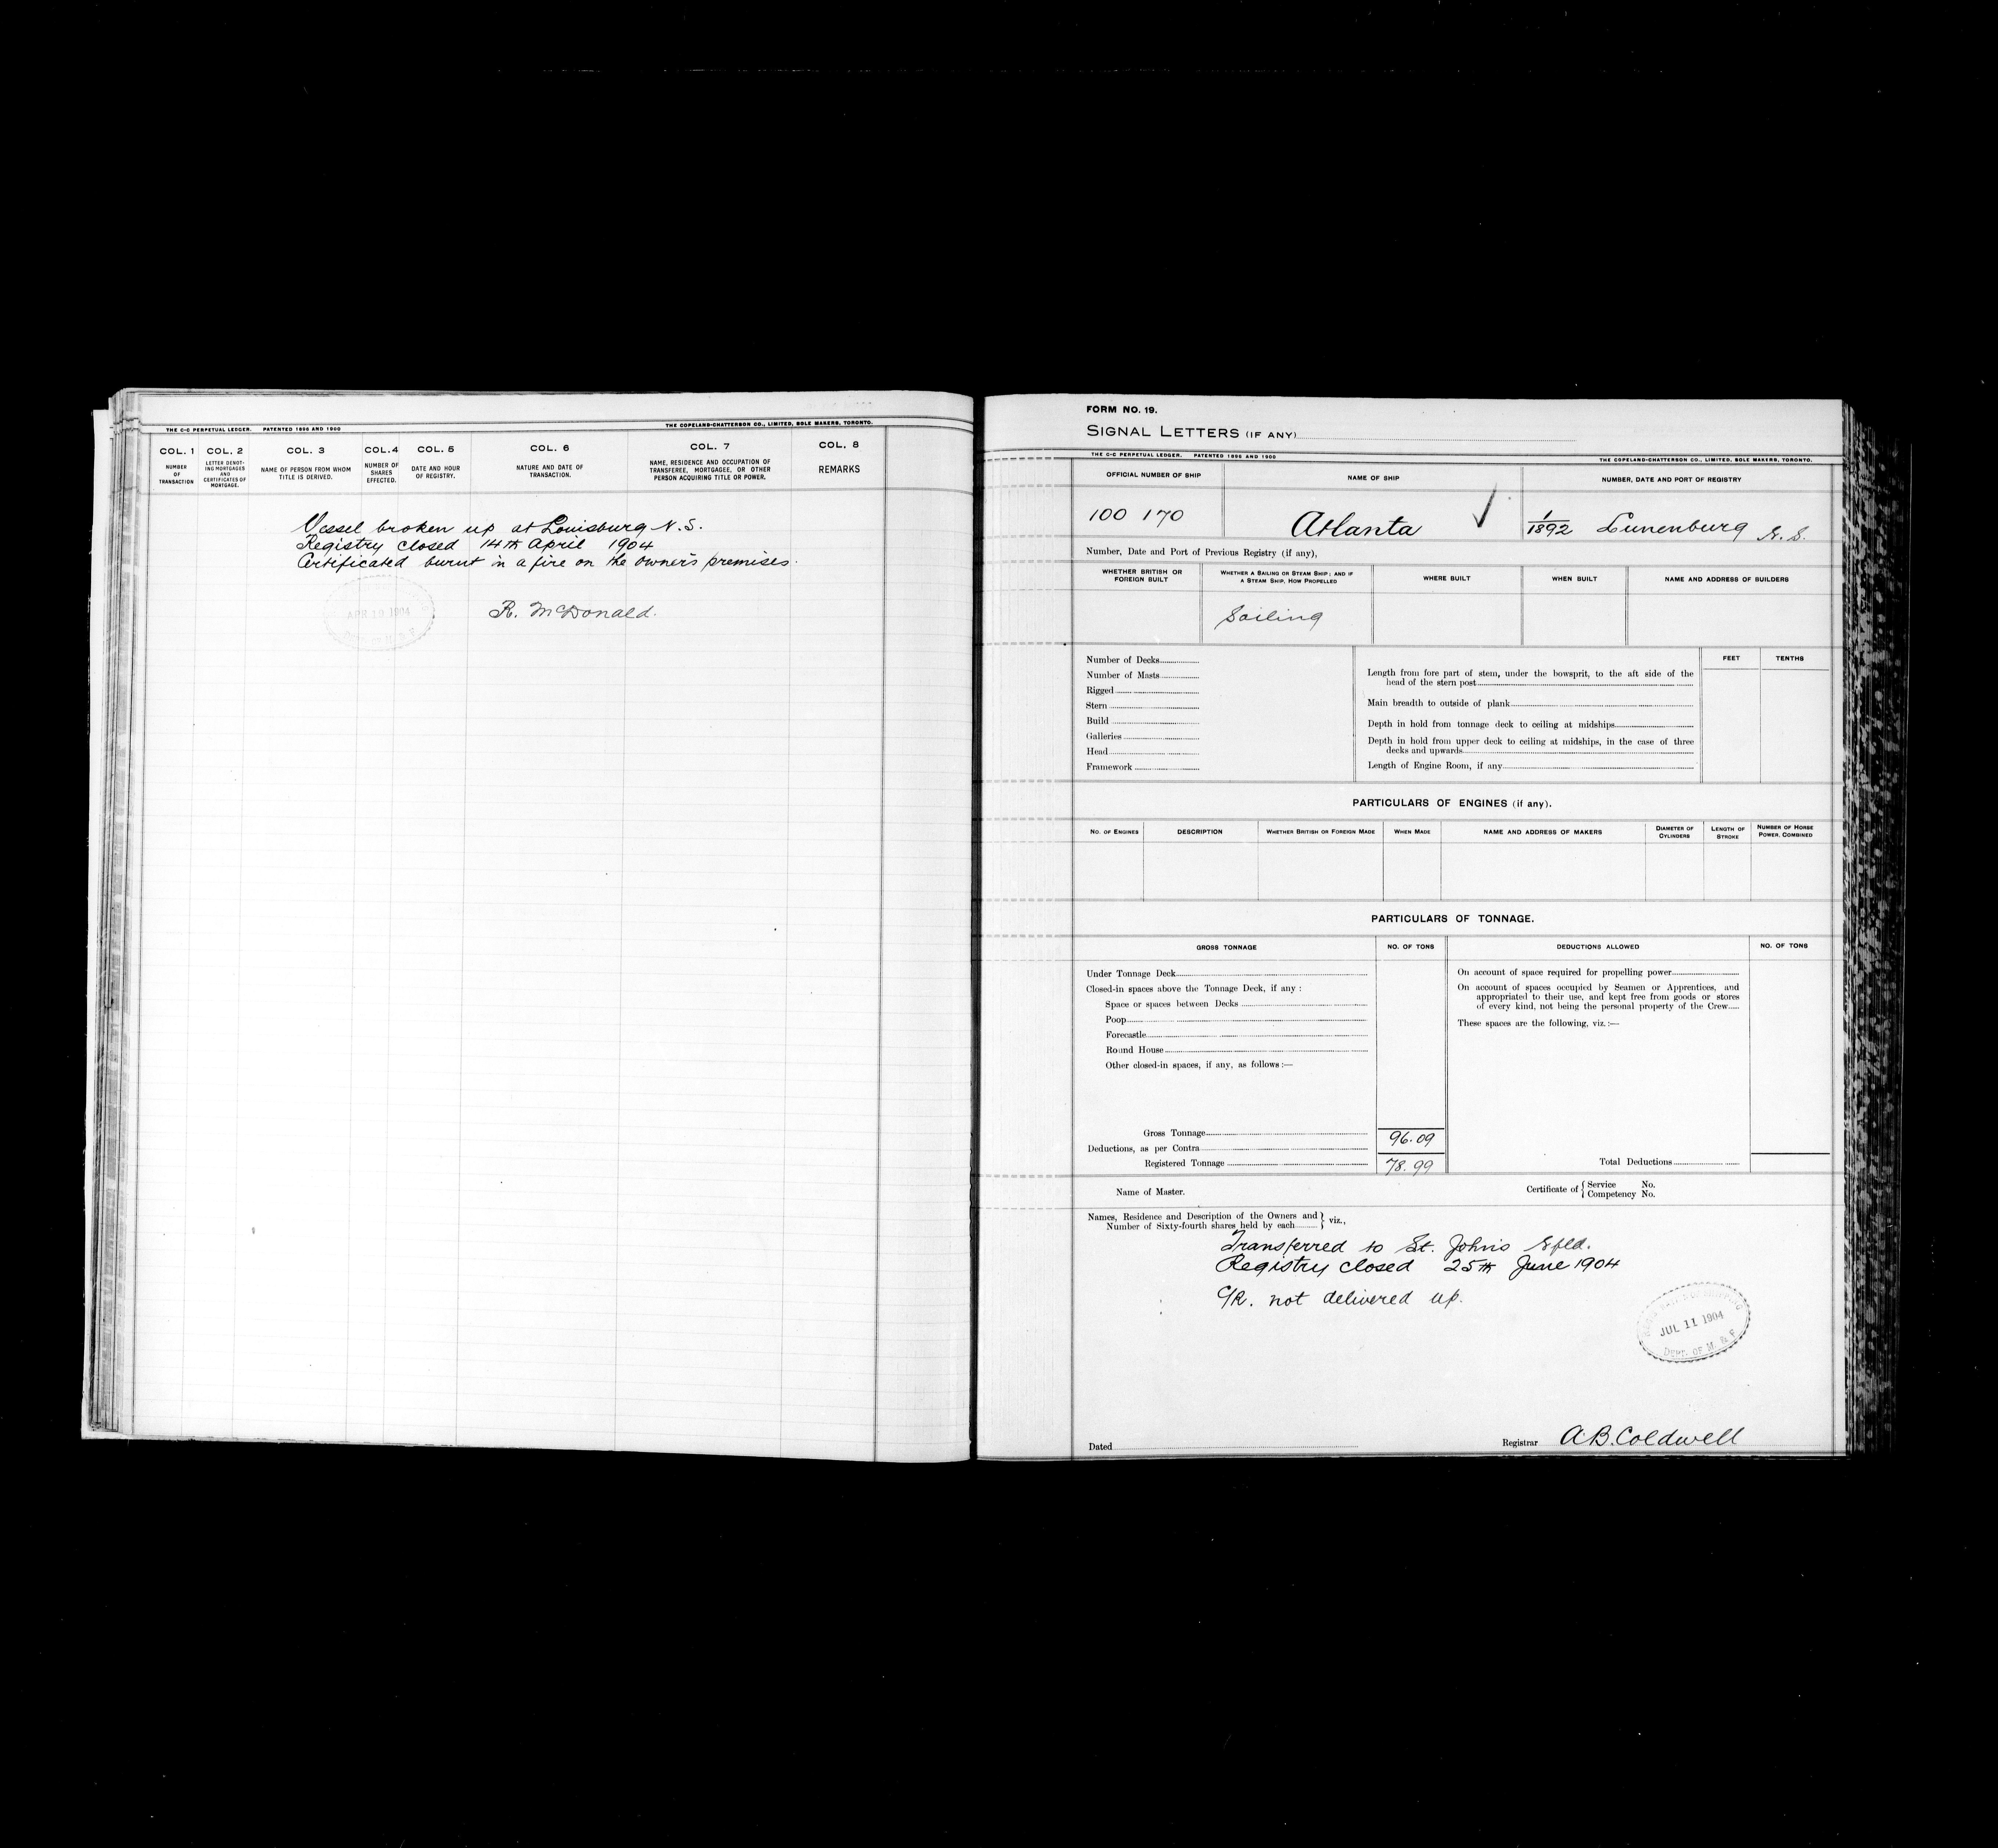 THE C-C PERPETUAL LEDGER. PATENTED 1896 AND 1900
THE COPELAND-CHATTERSON CO., LIMITED, SOLE MAKERS, TORONTO.
COL. 1 COL. 2 COL. 3 COL. 4 COL. 5 COL. 6 COL. 7 COL. 8
NUMBER OF TRANSACTION
LETTER DENOTING MORTGAGES AND CERTIFICATES OF MORTGAGE.
NAME OF PERSON FROM WHOM TITLE IS DERIVED.
NUMBER OF SHARES EFFECTED.
DATE AND HOUR OF REGISTRY.
NATURE AND DATE OF TRANSACTION.
NAME, RESIDENCE AND OCCUPATION OF TRANSFEREE, MORTGAGEE, OR OTHER PERSON ACQUIRING TITLE OR POWER.
REMARKS
Vessel broken up at Louisburg N.S.
Registry closed 14th April 1904
Certificated burnt in a fire on the owner's premises.
APR 19 1904
R. McDonald.
FORM NO. 19.
SIGNAL LETTERS (IF ANY)
THE C-C PERPETUAL LEDGER. PATENTED 1896 AND 1900
THE COPELAND-CHATTERSON CO., LIMITED, SOLE MAKERS, TORONTO.
OFFICIAL NUMBER OF SHIP NAME OF SHIP NUMBER, DATE AND PORT OF REGISTRY
100 170 Atlanta 1/1892 Lunenburg N.S.
Number, Date and Port of Previous Registry (if any),
WHETHER BRITISH OR FOREIGN BUILT
WHETHER A SAILING OR STEAM SHIP; AND IF A STEAM SHIP, HOW PROPELLED
WHERE BUILT
WHEN BUILT
NAME AND ADDRESS OF BUILDERS
Sailing
FEET TENTHS
Number of Decks
Number of Masts
Rigged
Stern
Build
Galleries
Head
Framework
Length from fore part of stem, under the bowsprit, to the aft side of the
head of the stern post
Main breadth to outside of plank
Depth in hold from tonnage deck to ceiling at midships
Depth in hold from upper deck to ceiling at midships, in the case of three
decks and upwards
Length of Engine Room, if any
PARTICULARS OF ENGINES (if any).
NO. OF ENGINES DESCRIPTION WHETHER BRITISH OR FOREIGN MADE WHEN MADE NAME AND ADDRESS OF MAKERS DIAMETER OF CYLINDERS LENGTH OF STROKE NUMBER OF HORSE POWER, COMBINED
PARTICULARS OF TONNAGE.
GROSS TONNAGE NO. OF TONS DEDUCTIONS ALLOWED NO. OF TONS
Under Tonnage Deck
Closed-in spaces above the Tonnage Deck, if any :
Space or spaces between Decks
Poop
Forecastle
Round House
Other closed-in spaces, if any, as follows :—
On account of space required for propelling power
On account of spaces occupied by Seamen or Apprentices, and
appropriated to their use, and kept free from goods or stores
of every kind, not being the personal property of the Crew
These spaces are the following, viz. :—
Gross Tonnage 96.09
Deductions, as per Contra
Registered Tonnage 78.99
Total Deductions
Name of Master.
Certificate of { Service No.
Competency No.
Names, Residence and Description of the Owners and
Number of Sixty-fourth shares held by each } viz.,
Transferred to St. Johns Nfld.
Registry closed 25th June 1904
C/R. not delivered up.
JUL 11 1904
DEPT. OF M. & F.
Dated
Registrar A.B. Coldwell